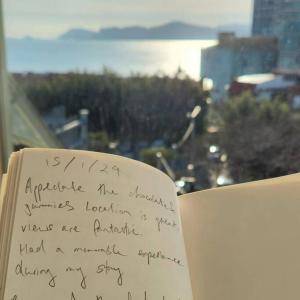 15/1/24
Appreciate the chocolate &
gummies Location is great
views are fantastic
Had a memorable experience
during my stay